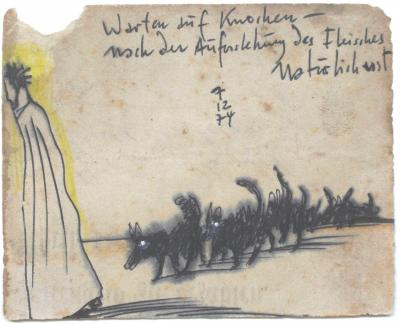 Warten auf Knochen –
nach der Auferstehung des Fleisches
natürlich erst
12
74